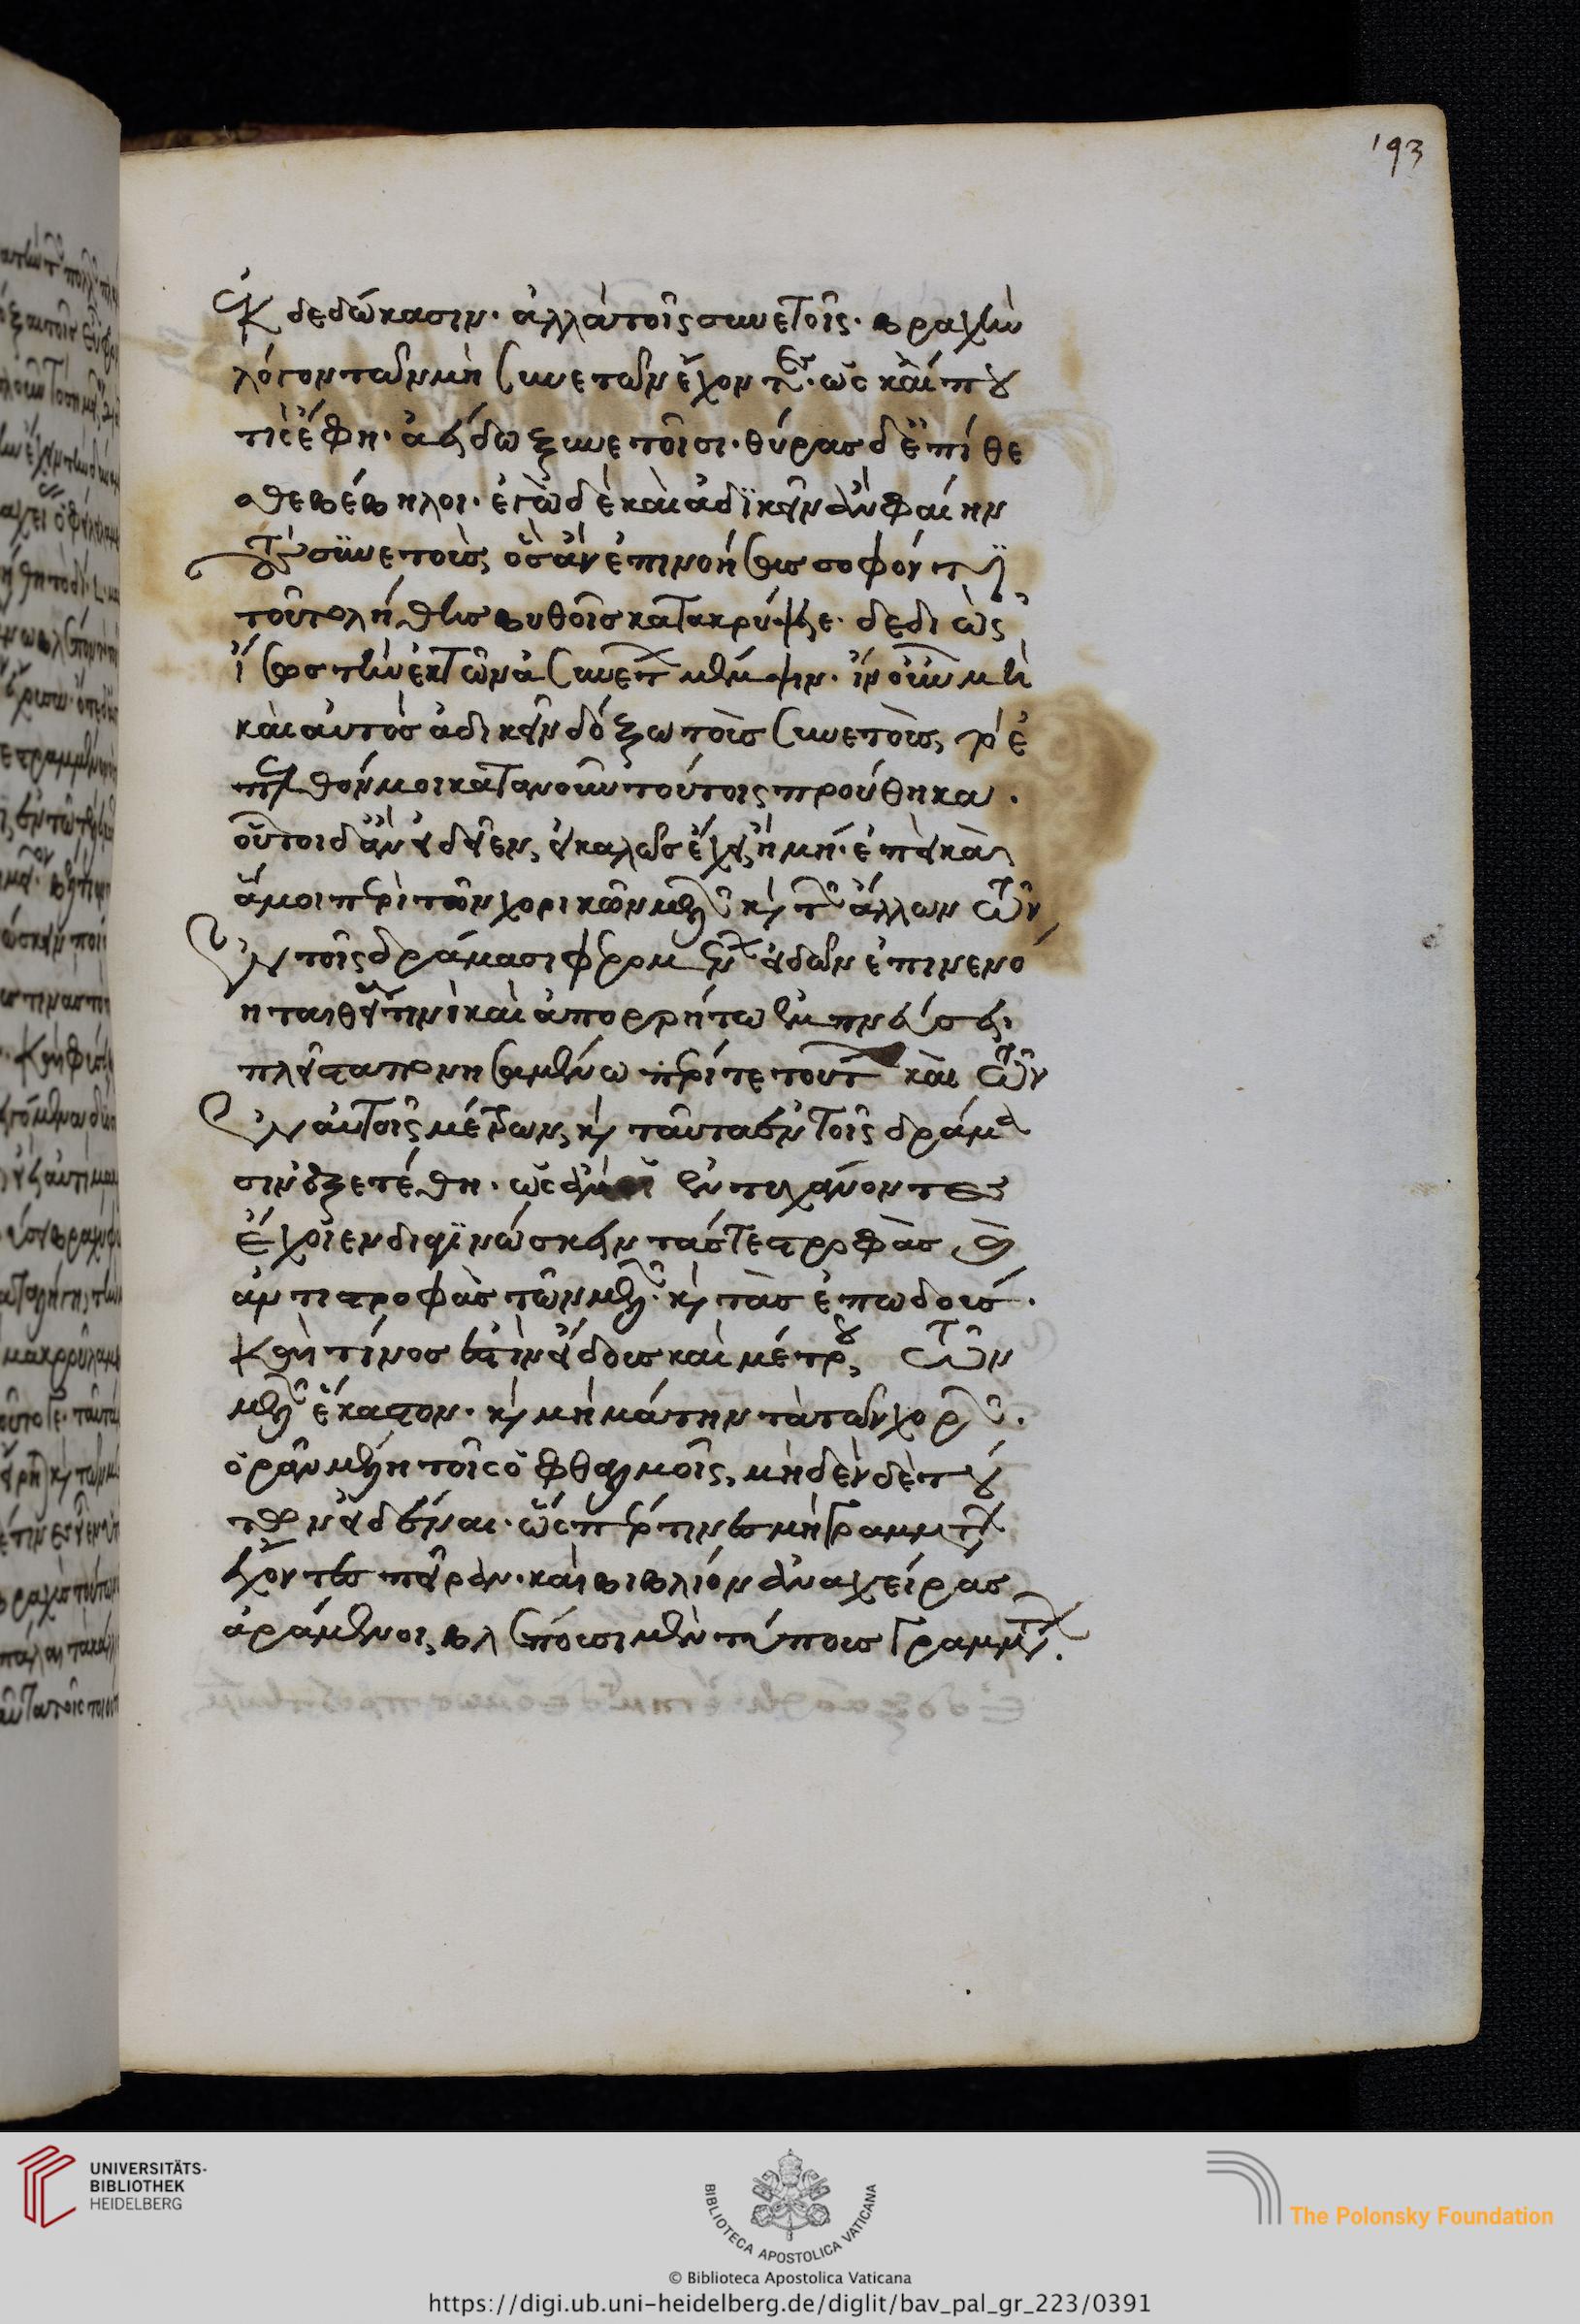 193
ἐκδεδώκασιν· ἀλλὰ τοῖς συνετοῖς· βραχὺν
λόγον τῶν μὴ συνετῶν ἔχοντες· ὡς καί που
τις ἔφη· ἀείδω ξυνετοῖσι· θύρας δ' ἐπίθε
σθε βέβηλοι· ἐγὼ δὲ καὶ ἀδικεῖν ἂν φαίην
τοὺς συνετοὺς, ὃς ἂν ἐπινοήσας σοφόν τι
τοῦτο λήθης βυθοῖς κατακρύψῃ· δεδιὼς
ἴσως τὴν ἐκ τῶν ἀσυνέτων μέμψιν· ἵν' οὖν μὴ
καὶ αὐτὸς ἀδικεῖν δόξω τοὺς συνετοὺς,
μοι κατὰ νοῦν τούτοις προύθηκα·
οὔτοι δ' ἂν εἰδεῖεν, εἰ καλῶς ἔχει ἢ μή· ἐπεὶ καὶ
ἅ μοι περὶ τῶν χορικῶν μελῶν καὶ τῶν ἄλλων τῶν
ἐν τοῖς δράμασι φερομένων εἰδῶν ἐπινενό
ηται θείᾳ τινὶ καὶ ἀπορρήτῳ ἐμπνεύσει
πλεῖστα πονησαμένῳ περί τε τούτων καὶ τῶν
ἐν αὐτοῖς μέτρων, καὶ ταῦτα ἐν τοῖς δράμα
σιν ἐξετέθη· ὡς ἂν οἱ ἐντυγχάνοντες
ἔχοιεν διαγινώσκειν τάς τε στροφὰς καὶ
ἀντιστροφὰς τῶν μελῶν· καὶ τὰς ἐπωδούς·
καὶ τίνος ἐστὶν εἴδους καὶ μέτρου, τῶν
μελῶν ἕκαστον· καὶ μὴ μάτην τὰ τῶν χορῶν·
ὁρᾶν μὲν τοῖς ὀφθαλμοῖς, μηδὲν δὲ τού
των εἰδέναι· ὥσπερ τινὲς μὴ γραμμάτων
ἔχοντες πεῖραν· καὶ βιβλίον ἀνὰ χεῖρας
ἀράμενοι, βλέπουσι μὲν τύπους γραμμάτων·
UNIVERSITÄTS-
BIBLIOTHEK
HEIDELBERG
BIBLIOTECA APOSTOLICA VATICANA
The Polonsky Foundation
© Biblioteca Apostolica Vaticana
https://digi.ub.uni-heidelberg.de/diglit/bav_pal_gr_223/0391